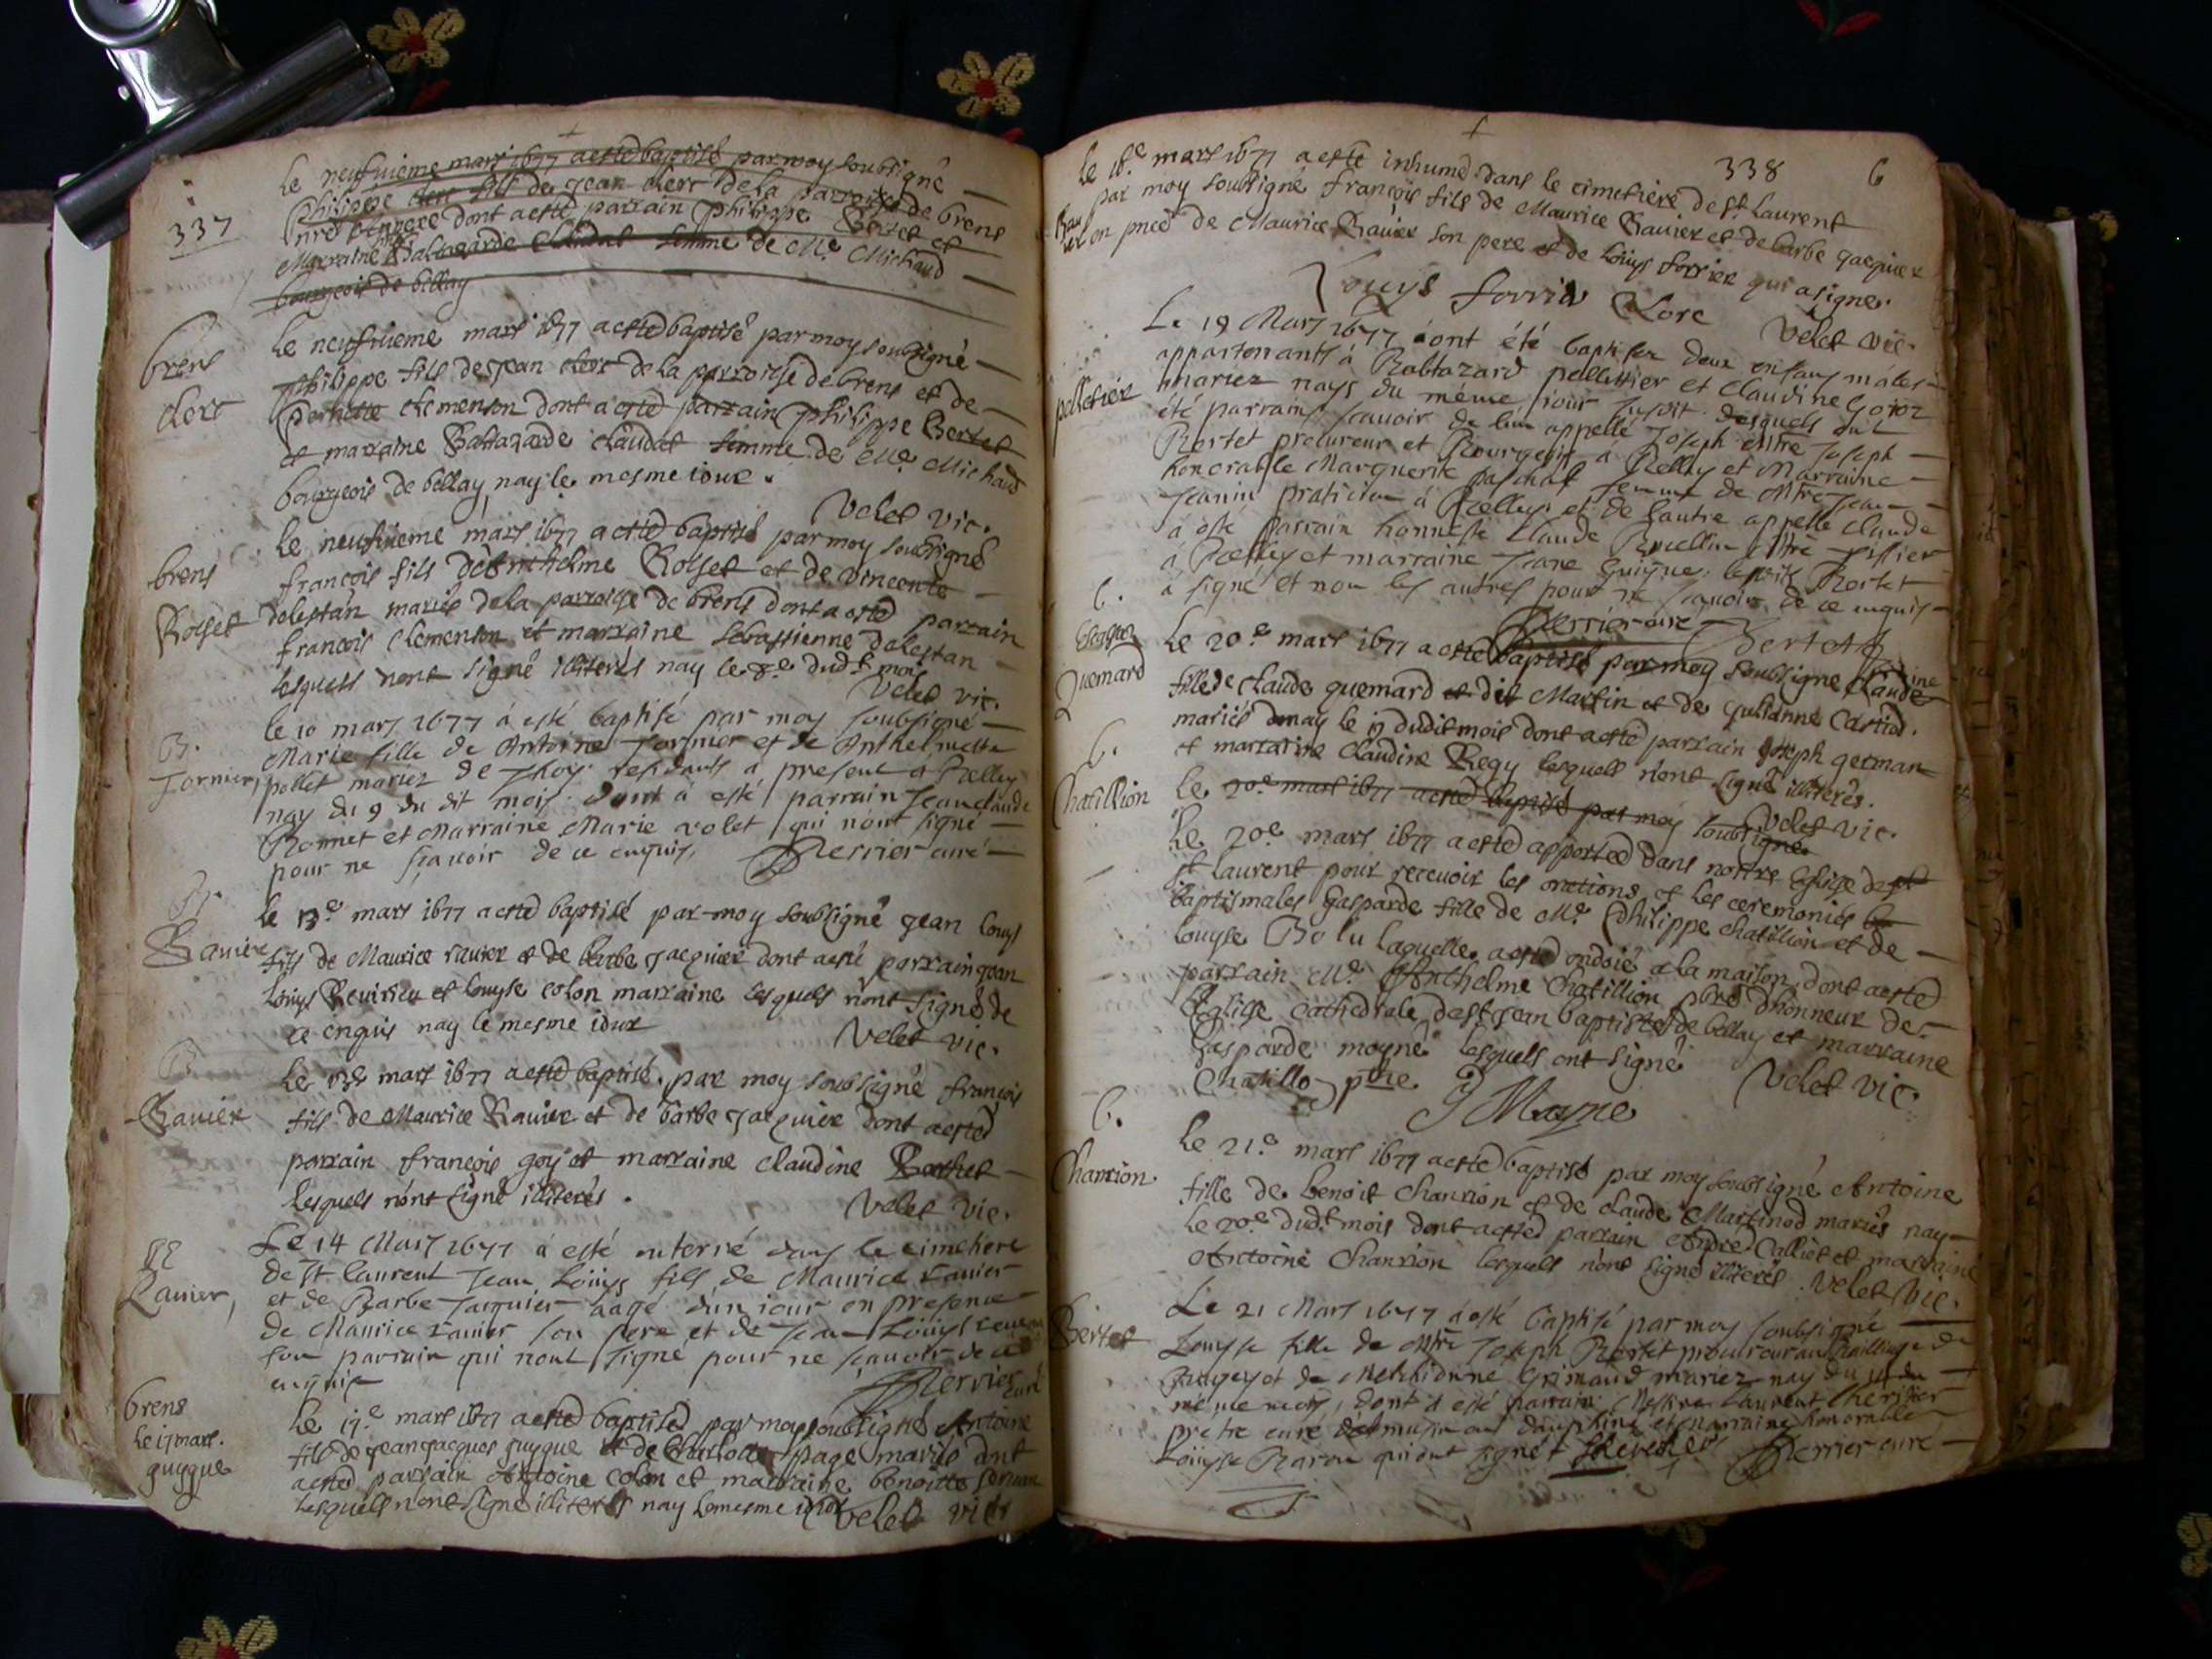 337
le neufuieme mars 1677 a esté baptisé par moy soubsigné
Philippe fils de Jean clert de la parroisse de brens
dont a esté parrain Philippe Bertet et
Marraine Baltazarde Claudat femme de Me Michaud
bourgeois de bellay
brens
clert
Le neufuieme mars 1677 a esté baptisé par moy soubsigné
philippe fils de Jean clert de la parroisse de brens et de
clemenson dont a esté parrain philippe Bertet
et marraine Baltazarde claudat femme de Me Michaud
bourgeois de bellay, nay le mesme iour.
Velet vic.
brens
Rosset
le neufuieme mars 1677 a esté baptisé par moy soubsigné
françois fils d'Anthelme Rosset et de vincente
dalestan mariés de la parroisse de brens dont a esté parrain
francois clemenson et marraine sebastienne dalestan
lesquels nont signé illiterés nay le 8e dudt mois
Velet vic.
B.
Fornier,
le 10 mars 1677 à esté baptisé par moy soubsigné
Marie fille de Antoine Fornier et de Anthelmette
pollet mariez de residants a present à Belley
nay du 9 du dit mois dont à esté parrain Jean claude
Bonnet et Marraine Marie volet qui nont signé
pour ne sçavoir de ce enquis, Perrier curé
B.
Ravier
le 13e mars 1677 a esté baptisé par moy soubsigné Jean louys
fils de Maurice ravier et de barbe Jacquier dont a esté parrain Jean
louys Reuirieu et louyse colon marraine lesquels nont signé de
ce enquis nay le mesme iour
Velet vic.
B
Ravier
Le 13e mars 1677 a esté baptisé par moy soubsigné françois
fils de Maurice Ravier et de barbe Jacquier dont a esté
parrain françois goy et marraine claudine Berthet
lesquels nont signé illiterés.
Velet vic.
Ravier,
Le 14 Mars 1677 à esté enterré dans le cimetiere
de st. laurent Jean Louys fils de Maurice ravier
et de Barbe Jacquier aagé d'un iour en presence
de Maurice ravier son pere et de Jean Louys
son parrain qui nont signé pour ne sçavoir de ce
enquis
Perrier curé
brens
le 17 mars.
guygue
le 17e mars 1677 a esté baptisé par moy soubsigné Antoine
fils de Jean Jacques guygue et de Charlotte page mariés dont
a esté parrain Antoine colon et marraine benoitte
lesquels nont signé illiterés nay le mesme iour Velet vic.
338 6
Le 18e mars 1677 a esté inhumé dans le cimetiere de st. Laurent
par moy soubsigné françois fils de Maurice Ravier et de barbe Jacquier
Ravier
en pnce de Maurice Ravier son pere et de louys forrier qui a signé.
Louys
Velet vic.
pelletier
Le 19 Mars 1677 ont été baptisez deux enfans males
appartenants à Baltazard pellettier et claudine
mariez nays du méme iour susdit. desquels ont
été parrains sçavoir de l'un appellé Joseph Mtre Joseph
Bertet procureur et Bourgeois à Belley et Marraine
honorable Marguerite paschal femme de Mtre Jean
Jeanin praticien à Belley. et de l'autre appelle claude
à esté parrain honneste Claude
à Belley et marraine Jeane Guigue, ledit Bertet
a signé et non les autres pour ne sçavoir de ce enquis
Perrier curé
Bertet
b.
Quemard
Le 20e mars 1677 a esté baptisé par moy soubsigné Claudine
fille de claude quemard dit Martin et de Julianne
mariés nay le 19 dudit mois dont a esté parrain Joseph german
et marraine Claudine Regy lesquels n'ont signé illiterés.
Velet vic.
b.
Chatillion
le 20e mars 1677 a esté baptisé par moy soubsigné
le 20e mars 1677 a esté apporteé dans nostre Eglise de
st laurent pour receuoir les onctions et les ceremonies
baptismales Gasparde fille de Me Philippe chatillion et de
louyse Bolu laquelle a esté ondoié a la maison, dont a esté
parrain Me Anthelme Chatillion pbre d'honneur de
l'Eglise cathedrale de st Jean baptiste de bellay et marraine
gasparde moyne lesquels ont signé
Chatillo ptre. G Moyne Velet vic.
b.
Chanrion
Le 21e mars 1677 a esté baptisé par moy soubsigné Antoine
fille de benoit Chanrion et de claude Martinod mariés nay
le 20e dudt mois dont a esté parrain André Calliet et marraine
Antoine Chanrion lesquels n'ont signé illiterés. Velet vic.
Bertet
Le 21 Mars 1677 à esté baptisé par moy soubsigné
Louyse fille de Mtre Joseph Bertet procureur au Bailliage de
Bugey et de Grimaud mariez nay du
méme mois, dont à esté parrain Messire Laurent
prétre curé dauphiné et marraine honorable
Louyse Baron qui ont signé Perrier curé